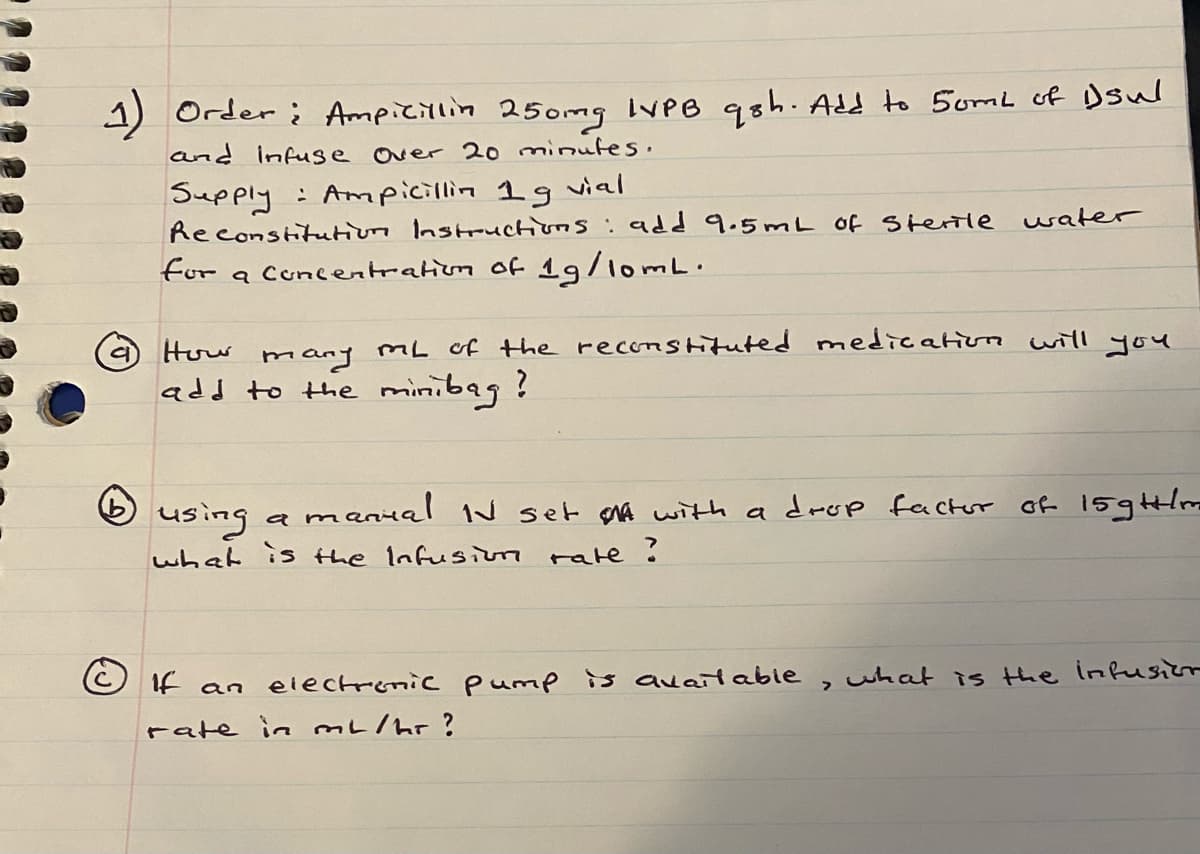 1) Order : Ampicillin 250mg IVPB q8h. Add to 50mL of D5W
and Infuse over 20 minutes.
Supply : Ampicillin 1g vial
Reconstitution Instructions : add 9.5mL of Sterile water
for a concentration of 1g/10mL.
a) How many mL of the reconstituted medication will you
add to the minibag ?
b) using a manual IV set with a drop factor of 15gtt/m
what is the Infusion rate ?
c) If an electronic pump is available , what is the infusion
rate in mL/hr ?